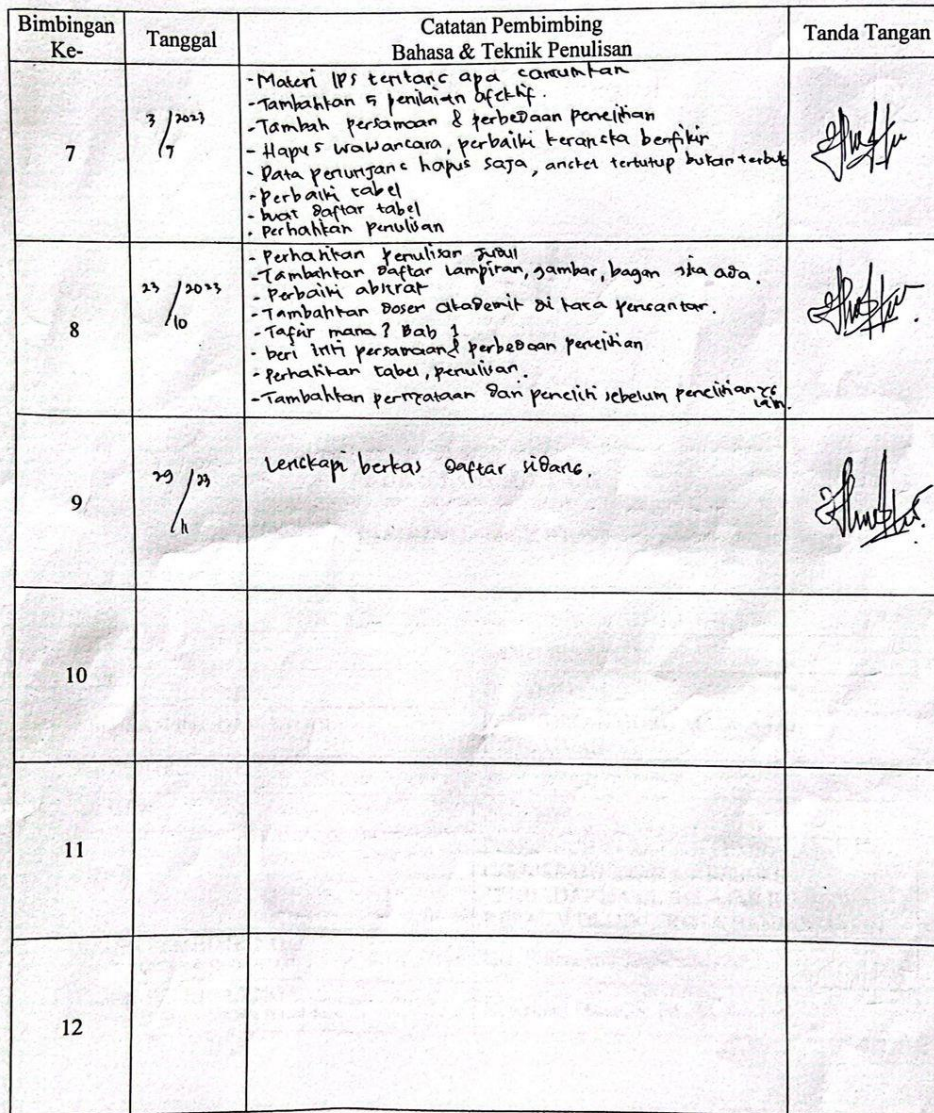 Bimbingan Ke-
Tanggal
Catatan Pembimbing
Bahasa & Teknik Penulisan
Tanda Tangan
7
3/7 2023
- Materi IPS tentang apa cantumkan
- Tambahkan 5 penilaian afektif.
- Tambah persamaan & perbedaan penelitian
- Hapus wawancara, perbaiki kerangka berfikir
- Data penunjang hapus saja, angket tertutup bukan terbuka
- Perbaiki tabel
- buat daftar tabel
- perhatikan penulisan
8
23/10 2023
- Perhatikan penulisan judul
- Tambahkan daftar lampiran, gambar, bagan jika ada.
- Perbaiki abstrak
- Tambahkan dosen akademik di kata pengantar.
- Tafsir mana? Bab 1
- beri inti persamaan & perbedaan penelitian
- Perhatikan tabel, penulisan.
- Tambahkan pernyataan dari peneliti sebelum penelitian yg lain.
9
29/11 23
Lengkapi berkas daftar sidang.
10
11
12